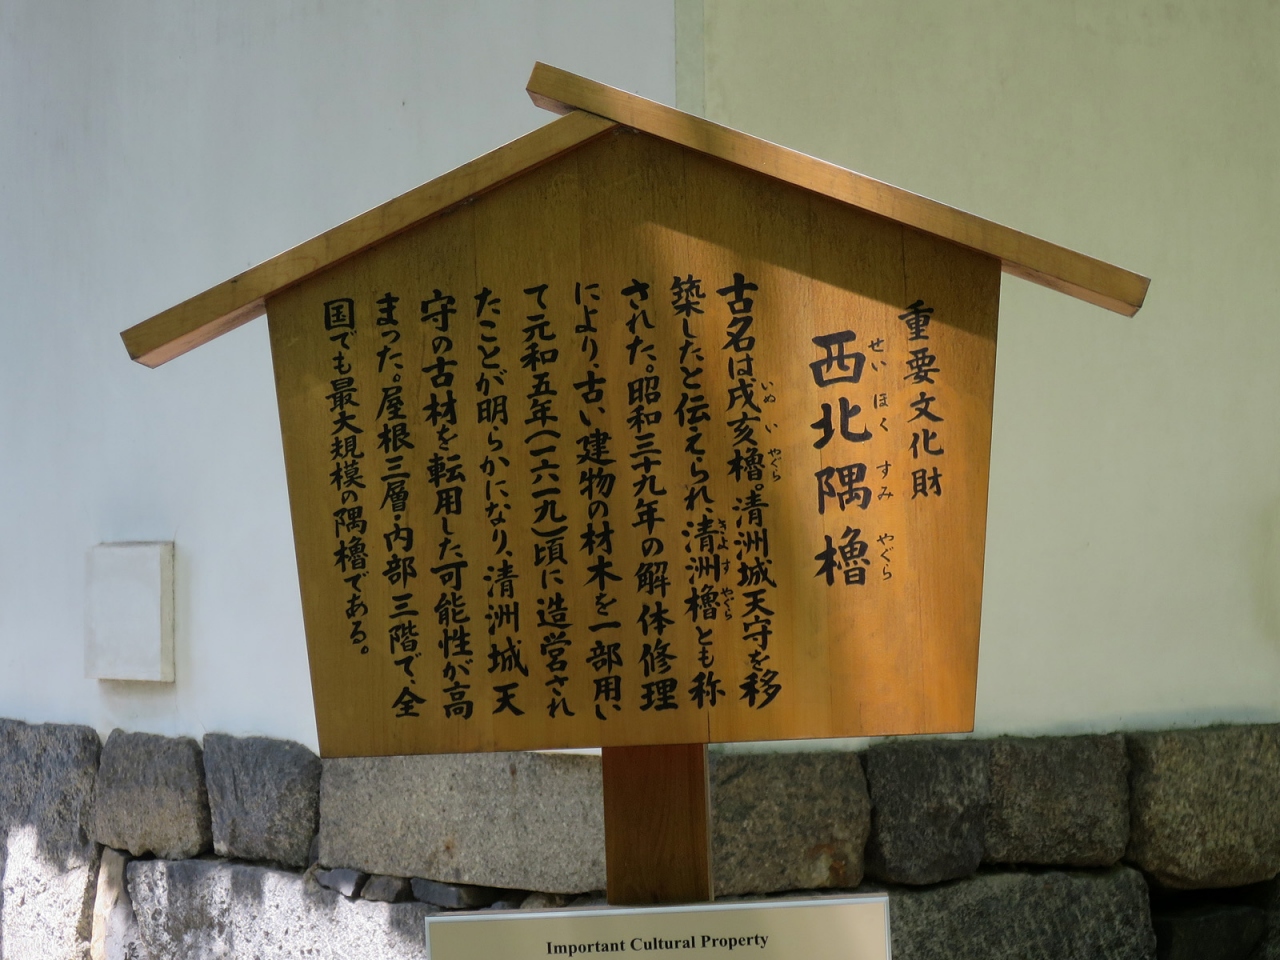 重要文化財
西北隅櫓
せい ほく すみ やぐら
古名は戌亥櫓。清洲城天守を移
いぬ い やぐら
築したと伝えられ、清洲櫓とも称
きよ す やぐら
された。昭和三十九年の解体修理
により、古い建物の材木を一部用い
て元和五年(一六一九)頃に造営され
たことが明らかになり、清洲城天
守の古材を転用した可能性が高
まった。屋根三層・内部三階で、全
国でも最大規模の隅櫓である。
Important Cultural Property